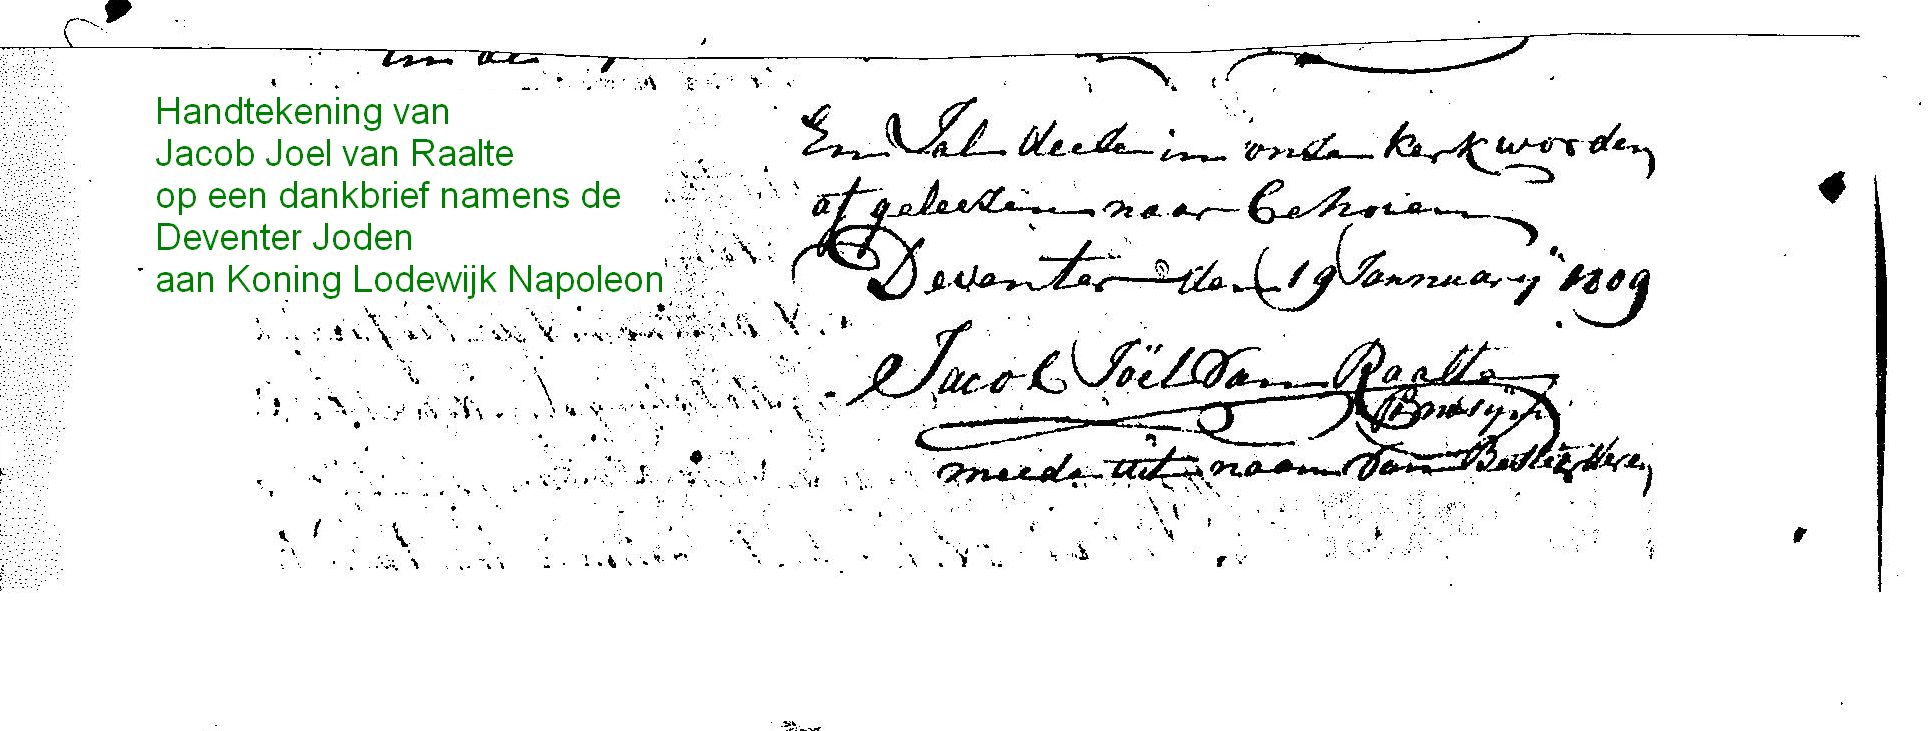 Handtekening van
Jacob Joel van Raalte
op een dankbrief namens de
Deventer Joden
aan Koning Lodewijk Napoleon
En Sal deese in onse kerk worden
af geleesen naar behoren
Deventer den 19 Jannuary 1809
Jacob Joël van Raalte
meede uit naam van